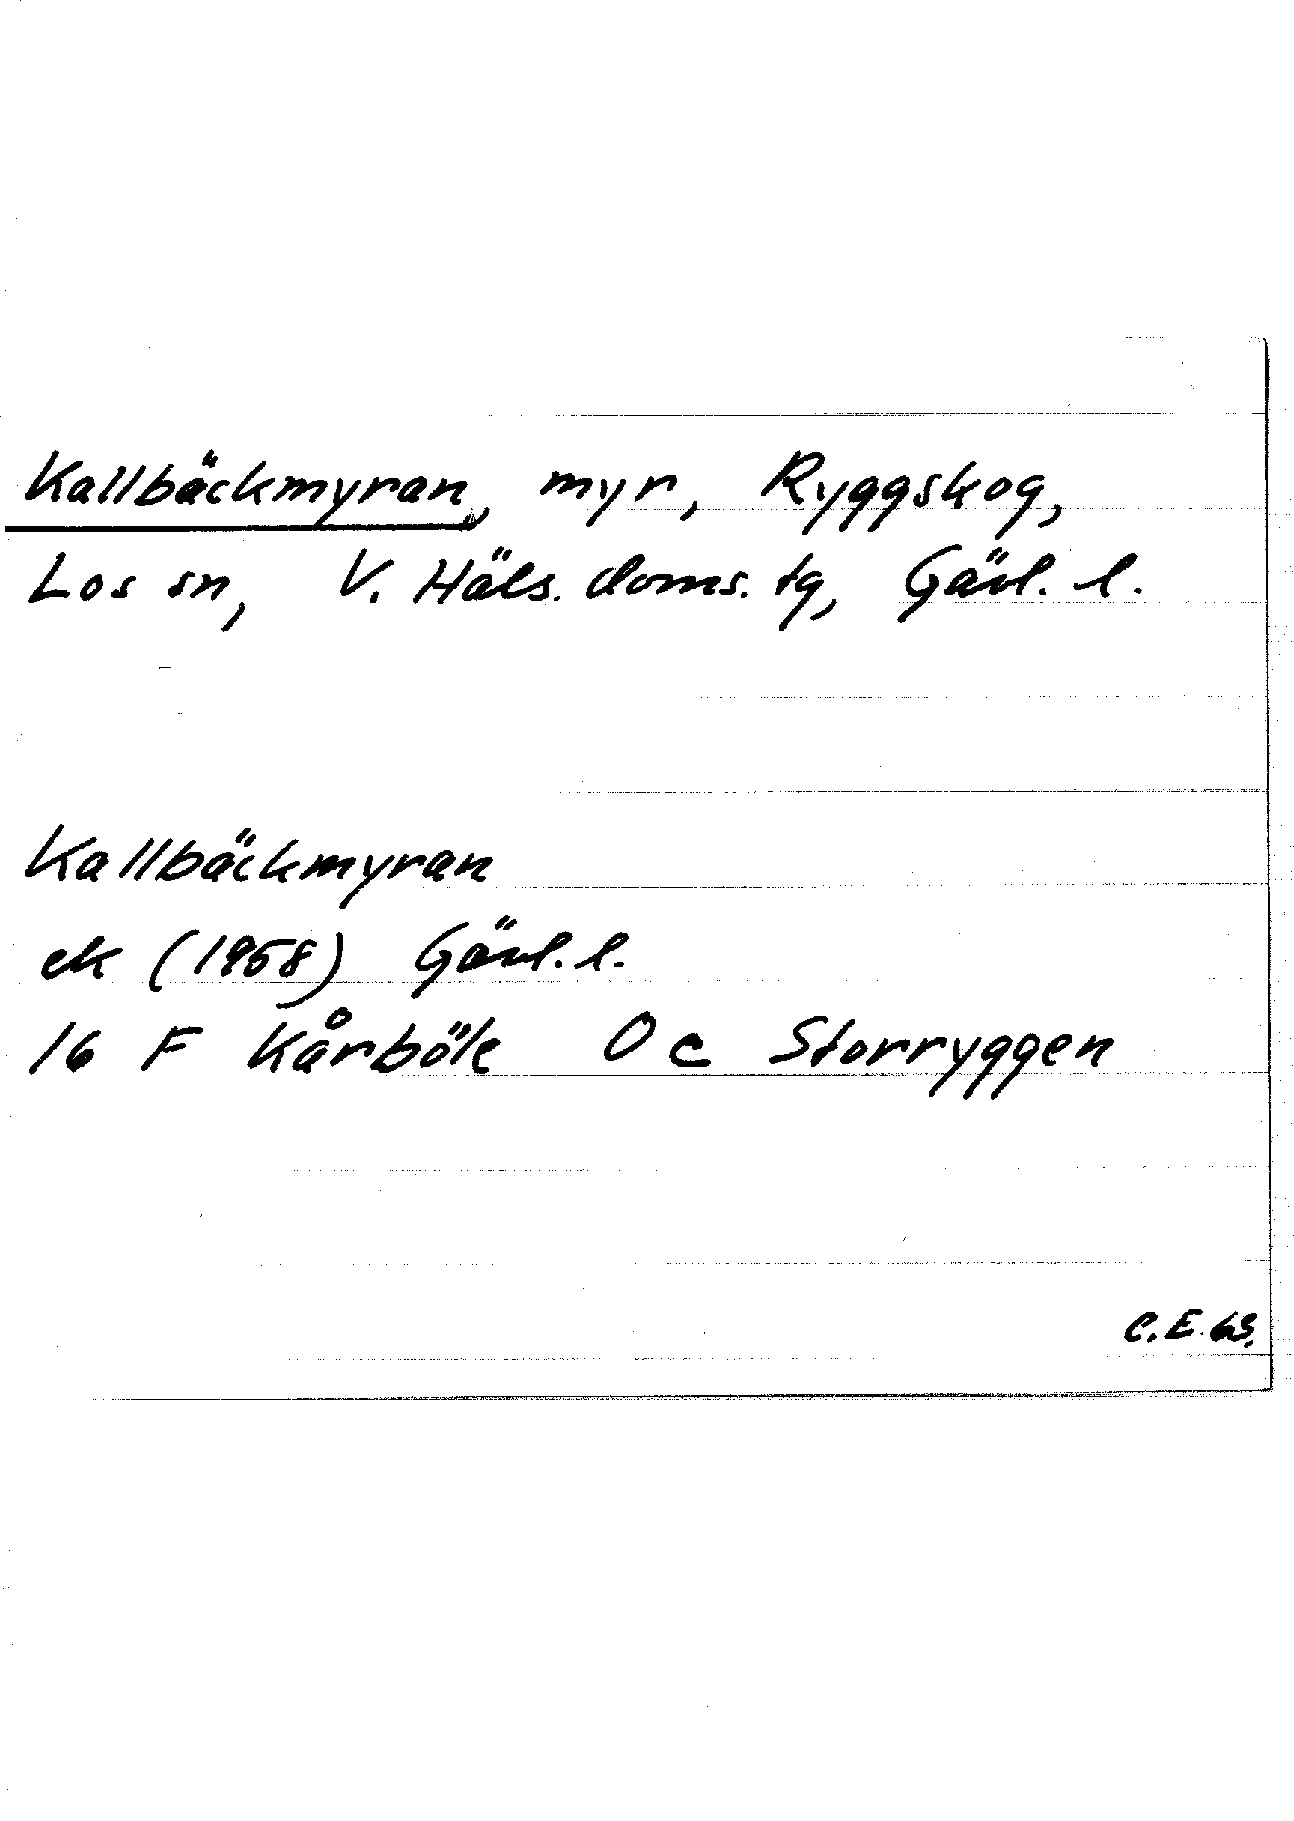 Kallbäckmyran, myr, Ryggskog,
Los sn, V. Häls. doms. tg, Gävl. l.
Kallbäckmyran
ek (1958) Gävl. l.
16 F Kårböle 0 c Storryggen
C. E. 63.